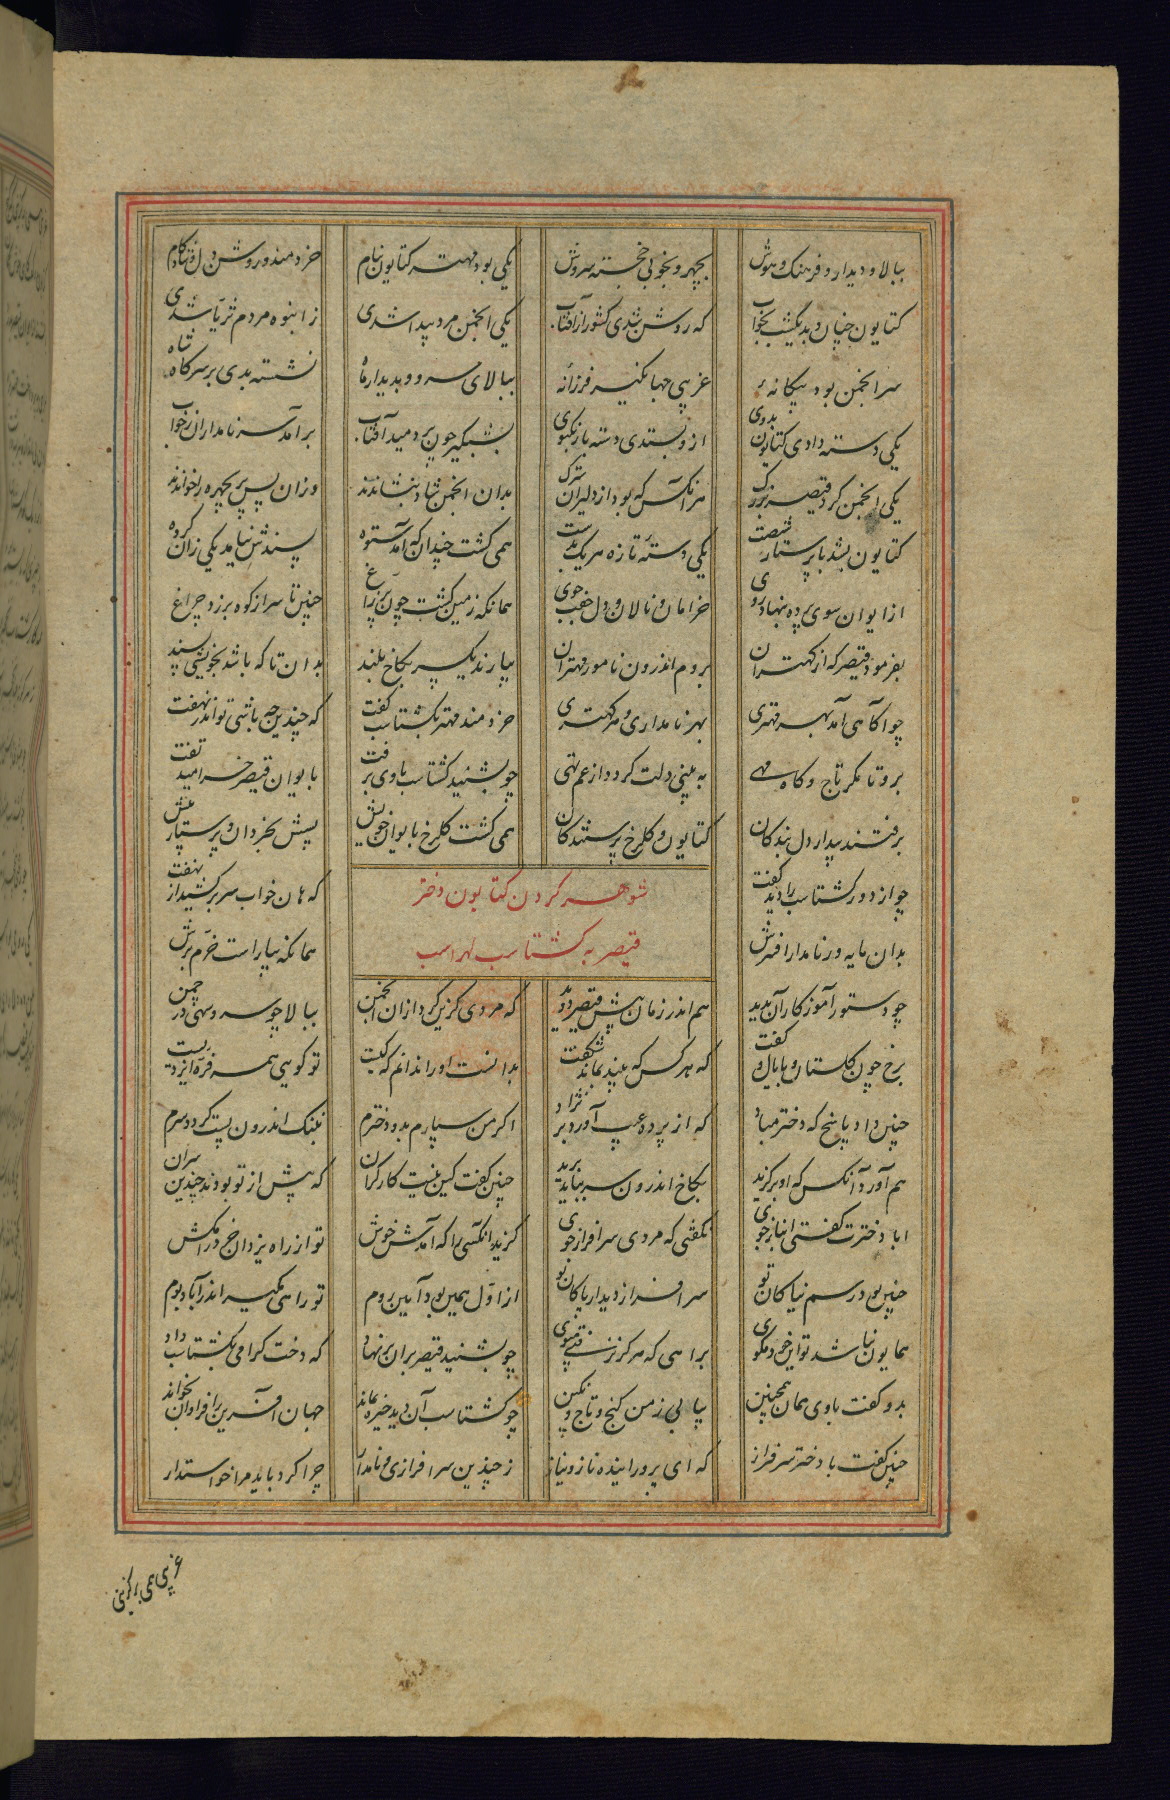 ببالا و دیدار و فرهنگ و هوش بچهر و بخوبی خجسته سروش یکی بود مهتر کتایون بنام خردمند و روشن دل و شادکام
کتایون چنان دید یکشب بخواب که روشن شدی کشور از آفتاب یکی انجمن مرد پیدا شدی ز انبوه مردم ثریا شدی
سر انجمن بود بیگانه غریبی جهانگیر فرزانه ببالای سرو و بدیدار ماه نشسته بدی بر سر گاه شاه
یکی دسته دادی کتایون بدوی ازو بستدی دسته باز نکبوی بشبگیر چون بردمید آفتاب برآمد سر نامداران ز خواب
یکی انجمن کرد قیصر بزرگ هر آنکس که بود از دلیران سترک بدان انجمن شاد بنشاندند وزان پس پریچهره را خواندند
کتایون بشد با پرستار شصت یکی دستهٔ تازه هر یک بدست همی گشت چندان که آمد ستوه پسندش نیامد یکی زان گروه
از ایوان سوی پرده بنهاد روی خرامان و نالان و دل جفت جوی همانگه زمین گشت چون پر زاغ چنین تا سر از کوه بر زد چراغ
بفرمود قیصر که از کهتران بروم اندرون نامور مهتران بیارند یکسر بکاخ بلند بدان تا که باشد بخوبی پسند
چو آگاهی آمد بهر مهتری بهر نامداری و هر کهتری خردمند مهتر بگشتاسب گفت که چندین چه باشی تو اندر نهفت
برو تا مگر تاج و گاه مهی به بینی دلت گردد از غم تهی چو بشنید گشتاسب با وی برفت بایوان قیصر خرامید تفت
برفتند بیدار دل بندگان کتایون و گلرخ پرستندگان همی گشت گلرخ بایوان خویش پسش بخردان و پرستار پیش
چو از دور گشتاسب را دید گفت که هان خواب سر برکشید از نهفت
بدان مایه ور نامدار افسرش همانگه بیاراست خرم برش
شوهر کردن کتایون دختر
قیصر به گشتاسب لهراسب
چو دستور آموزگار آن بدید هم اندر زمان پیش قیصر دوید که مردی گزین کرد از آن انجمن ببالا چو سرو سهی در چمن
برخ چون گلستان و با یال و کفت که هر کس که بیند بماند شگفت بدانست او را ندانم که کیست تو گویی همه فره ایزدیست
چنین داد پاسخ که دختر مباد که از پرده عیب آورد بر نژاد اگر من سپارم بدو دخترم بننگ اندرون پست گردد سرم
هم آورد آنکس که او برگزید بکاخ اندرون سر بباید برید چنین گفت کین نیست کار گران که پیش از تو بودند چندین سران
ابا دخترت گفتی انباز جوی نگفتی که مردی سرافراز جوی گزید آنکسی را که آمدش خوش تو از راه یزدان خرد را مکش
چنین بود رسم نیاکان تو سرافراز دیدار پاکان تو از اول همین بود آیین روم تو راهی مگیر اندر آباد بوم
همایون نباشد تو این خود مگوی براهی که هرگز نرفتی مپوی چو بشنید قیصر بران برنهاد که دخت گرامی بگشتاسب داد
بدو گفت با وی همان همچنین بیابی ز من گنج و تاج و نگین چو گشتاسب آن دید خیره بماند جهان آفرین را فراوان بخواند
چنین گفت با دختر سرفراز که ای پرورانیده ناز و نیاز ز چندین سرافرازی و نامدار چرا کرد باید مرا خواستدار
غریبی همی برگزینی